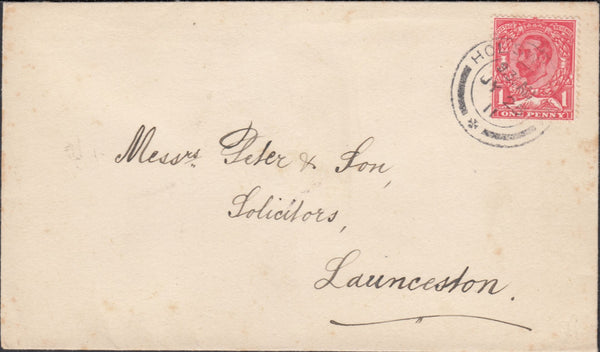 Messrs. Peter & Son,
Solicitors,
Launceston.
1 1
ONE PENNY
JY
11